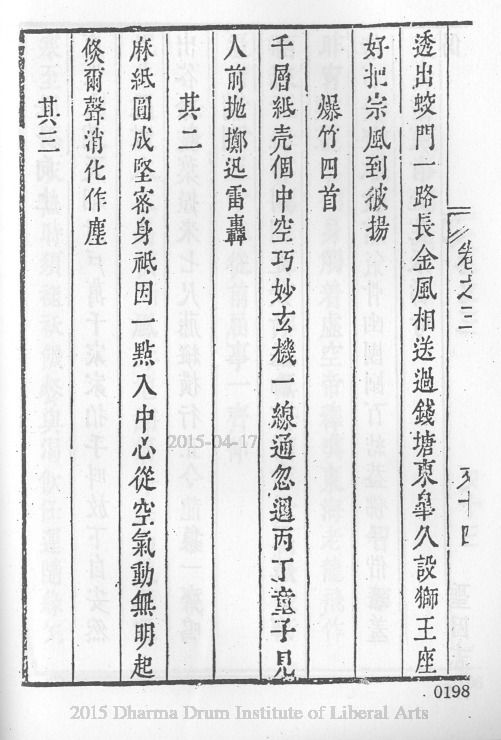 卷之三
十四
透出蛟門一路長金風相送過錢塘東臯久設獅王座
好把宗風到彼揚
爆竹四首
千層紙壳個中空巧妙玄機一線通忽遇丙丁童子見
人前拋擲迅雷轟
其二
麻紙圓成堅宻身祗因一點入中心從空氣動無明起
倐爾聲消化作塵
其三
0198
2015-04-17
2015 Dharma Drum Institute of Liberal Arts